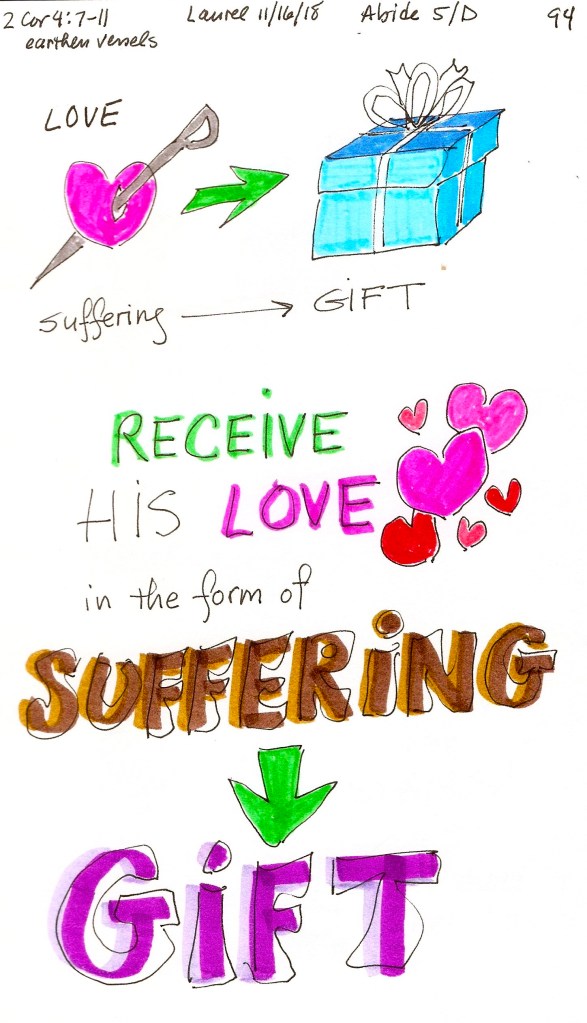 2 Cor 4:7-11 Laurel 11/16/18 Abide 5/D 94
earthen vessels
LOVE
suffering → GIFT
RECEIVE
HIS LOVE
in the form of
SUFFERING
GIFT